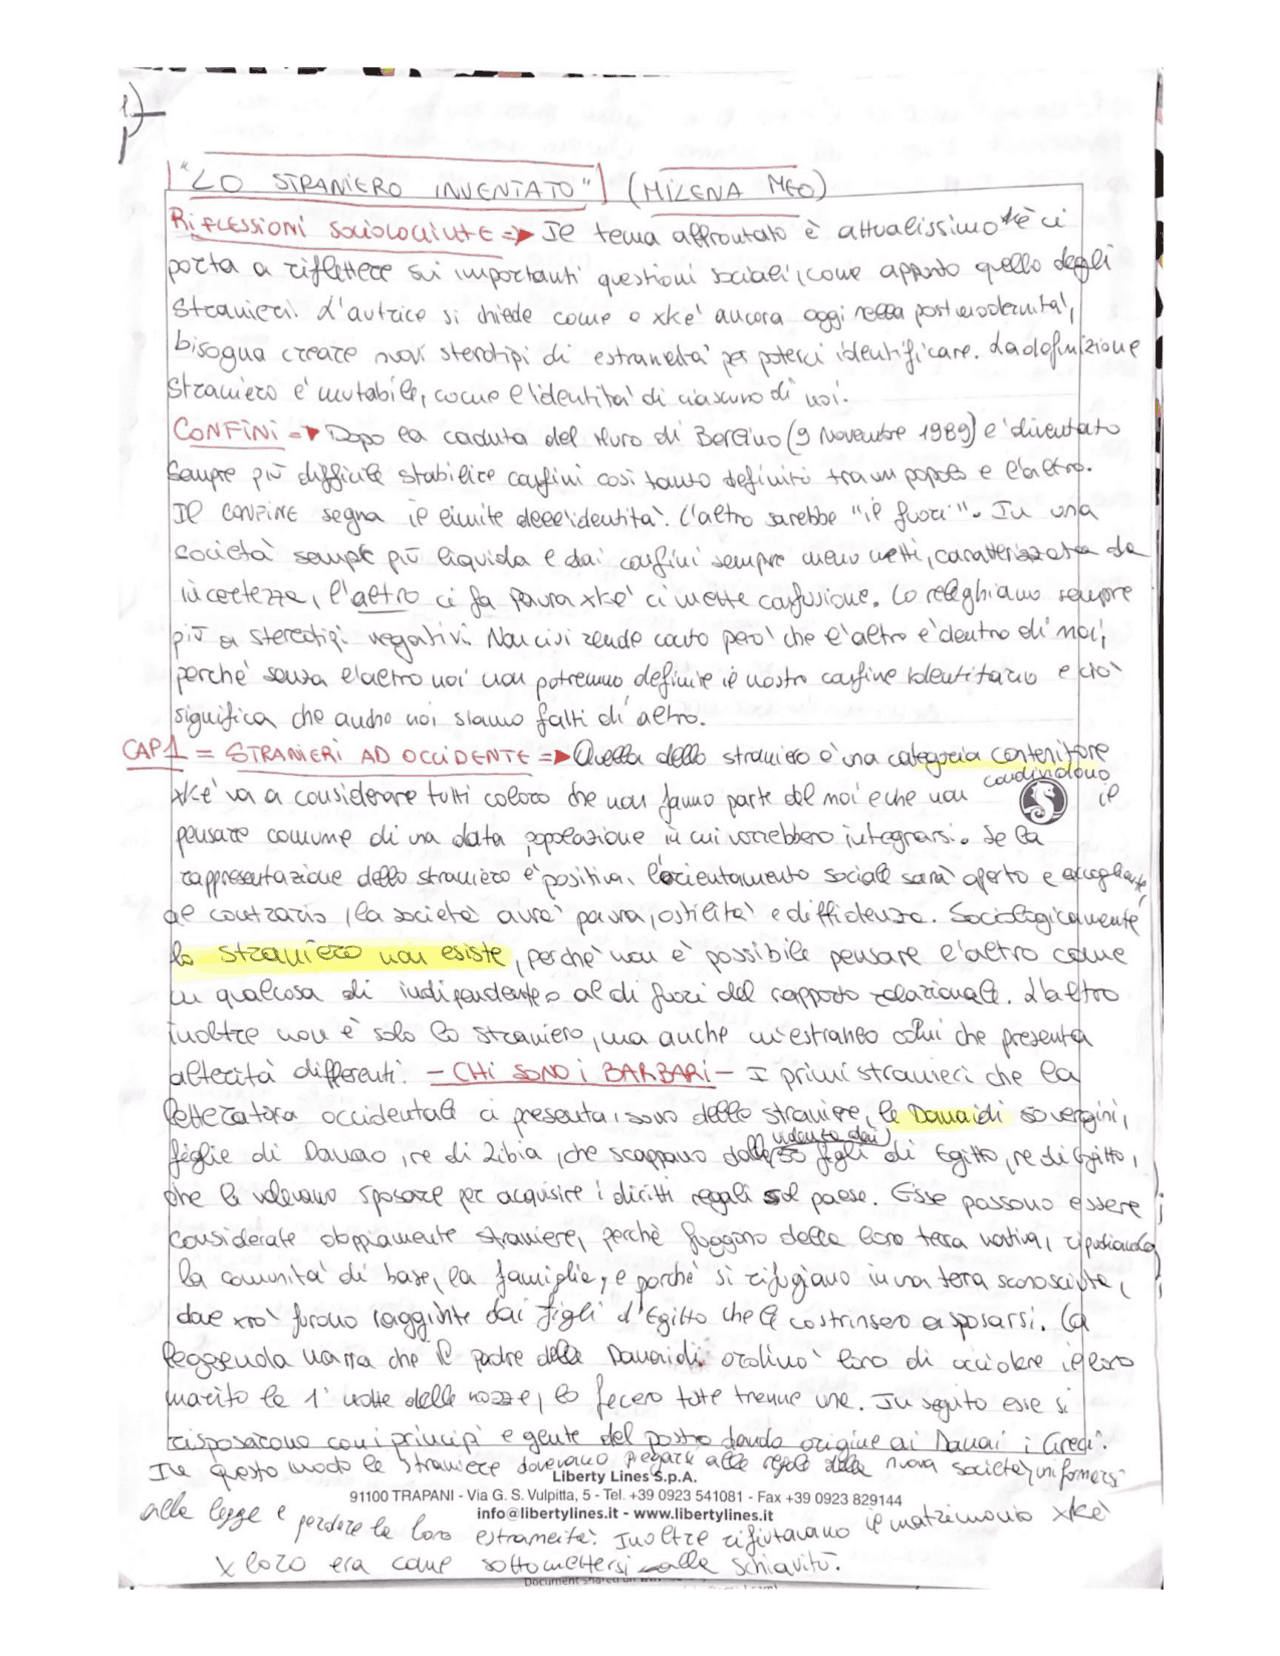 1)
"LO STRANIERO INVENTATO" (MILENA MEO)
RIFLESSIONI SOCIOLOGICHE => Il tema affrontato è attualissimo xkè ci
porta a riflettere su importanti questioni sociali, come appunto quello degli
stranieri. L'autrice si chiede come e xkè ancora oggi nella postmodernità,
bisogna creare nuovi sterotipi di estraneità per poterci identificare. La definizione
straniero è mutabile, come l'identità di ciascuno di noi.
CONFINI => Dopo la caduta del Muro di Berlino (9 Novembre 1989) è diventato
sempre più difficile stabilire confini così tanto definiti tra un popolo e l'altro.
Il CONFINE segna il limite dell'identità. L'altro sarebbe "il fuori". In una
società sempre più liquida e dai confini sempre meno netti, caratterizzata da
incertezze, l'altro ci fa paura xkè ci mette confusione. Lo releghiamo sempre
più a stereotipi negativi. Non ci si rende conto però che l'altro è dentro di noi,
perché senza l'altro noi non potremmo definire il nostro confine identitario e ciò
significa che anche noi siamo fatti di altro.
CAP 1 = STRANIERI AD OCCIDENTE => Quella dello straniero è una categoria contenitore
xkè va a considerare tutti coloro che non fanno parte del noi e che non condividono il
pensare comune di una data popolazione in cui vorrebbero integrarsi. Se la
rappresentazione dello straniero è positiva, l'orientamento sociale sarà aperto e accogliente,
al contrario, la società avrà paura, ostilità e diffidenza. Sociologicamente
lo straniero non esiste, perchè non è possibile pensare l'altro come
un qualcosa di indipendente o al di fuori del rapporto relazionale. L'altro
inoltre non è solo lo straniero, ma anche un'estraneo colui che presenta
alterità differenti. - CHI SONO I BARBARI - I primi stranieri che la
letteratura occidentale ci presenta, sono delle straniere, le Danaidi 50 vergini,
figlie di Danao, re di Libia, che scappano dalla violenza dei 50 figli di Egitto, re di Egitto,
che le volevano sposare per acquisire i diritti regali sul paese. Esse possono essere
considerate doppiamente straniere, perchè fuggono dalla loro terra nativa, ripudiando
la comunità di base, la famiglia, e perchè si rifugiano in una terra sconosciuta,
dove xrò furono raggiunte dai figli d'Egitto che le costrinsero a sposarsi. La
leggenda narra che il padre delle Danaidi ordinò loro di uccidere il loro
marito la 1° notte delle nozze, lo fecero tutte tranne una. In seguito esse si
risposarono con i principi e gente del posto dando origine ai Danai i Greci.
In questo modo le straniere dovevano piegarsi alle regole della nuova società, uniformarsi
Liberty Lines S.p.A.
91100 TRAPANI - Via G. S. Vulpitta, 5 - Tel. +39 0923 541081 - Fax +39 0923 829144
info@libertylines.it - www.libertylines.it
alla legge e perdere la loro estraneità. Inoltre rifiutavano il matrimonio xkè
x loro era come sottomettersi alla schiavitù.